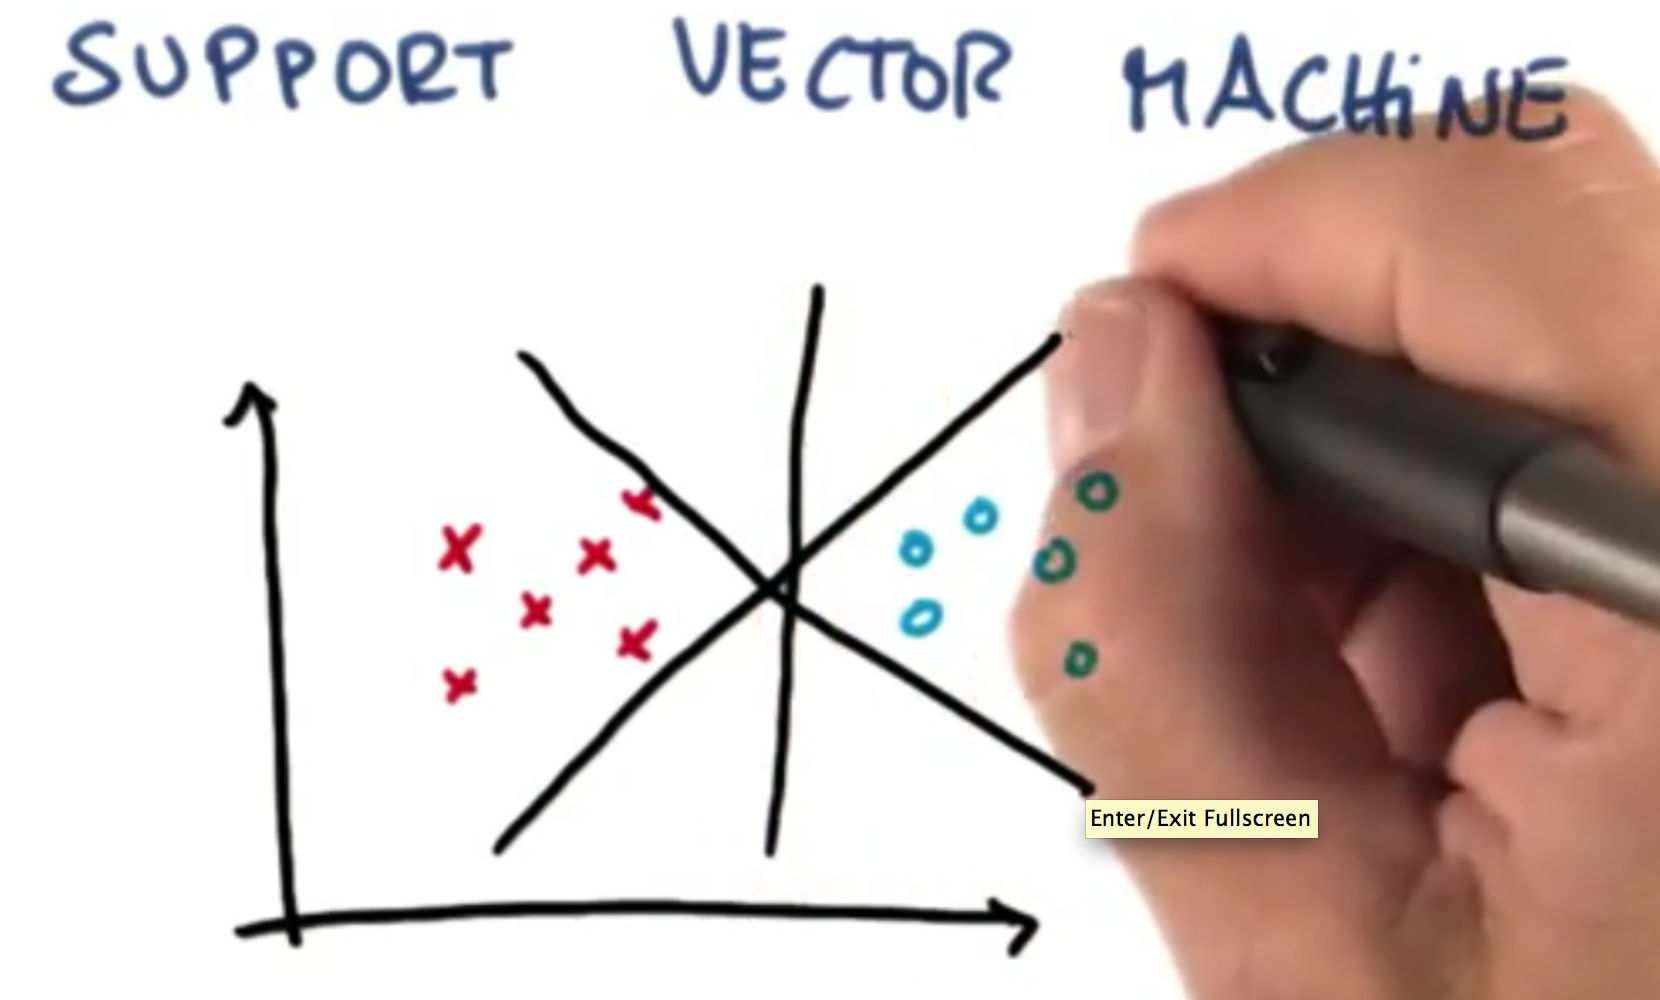 SUPPORT VECTOR MACHiNE
Enter/Exit Fullscreen